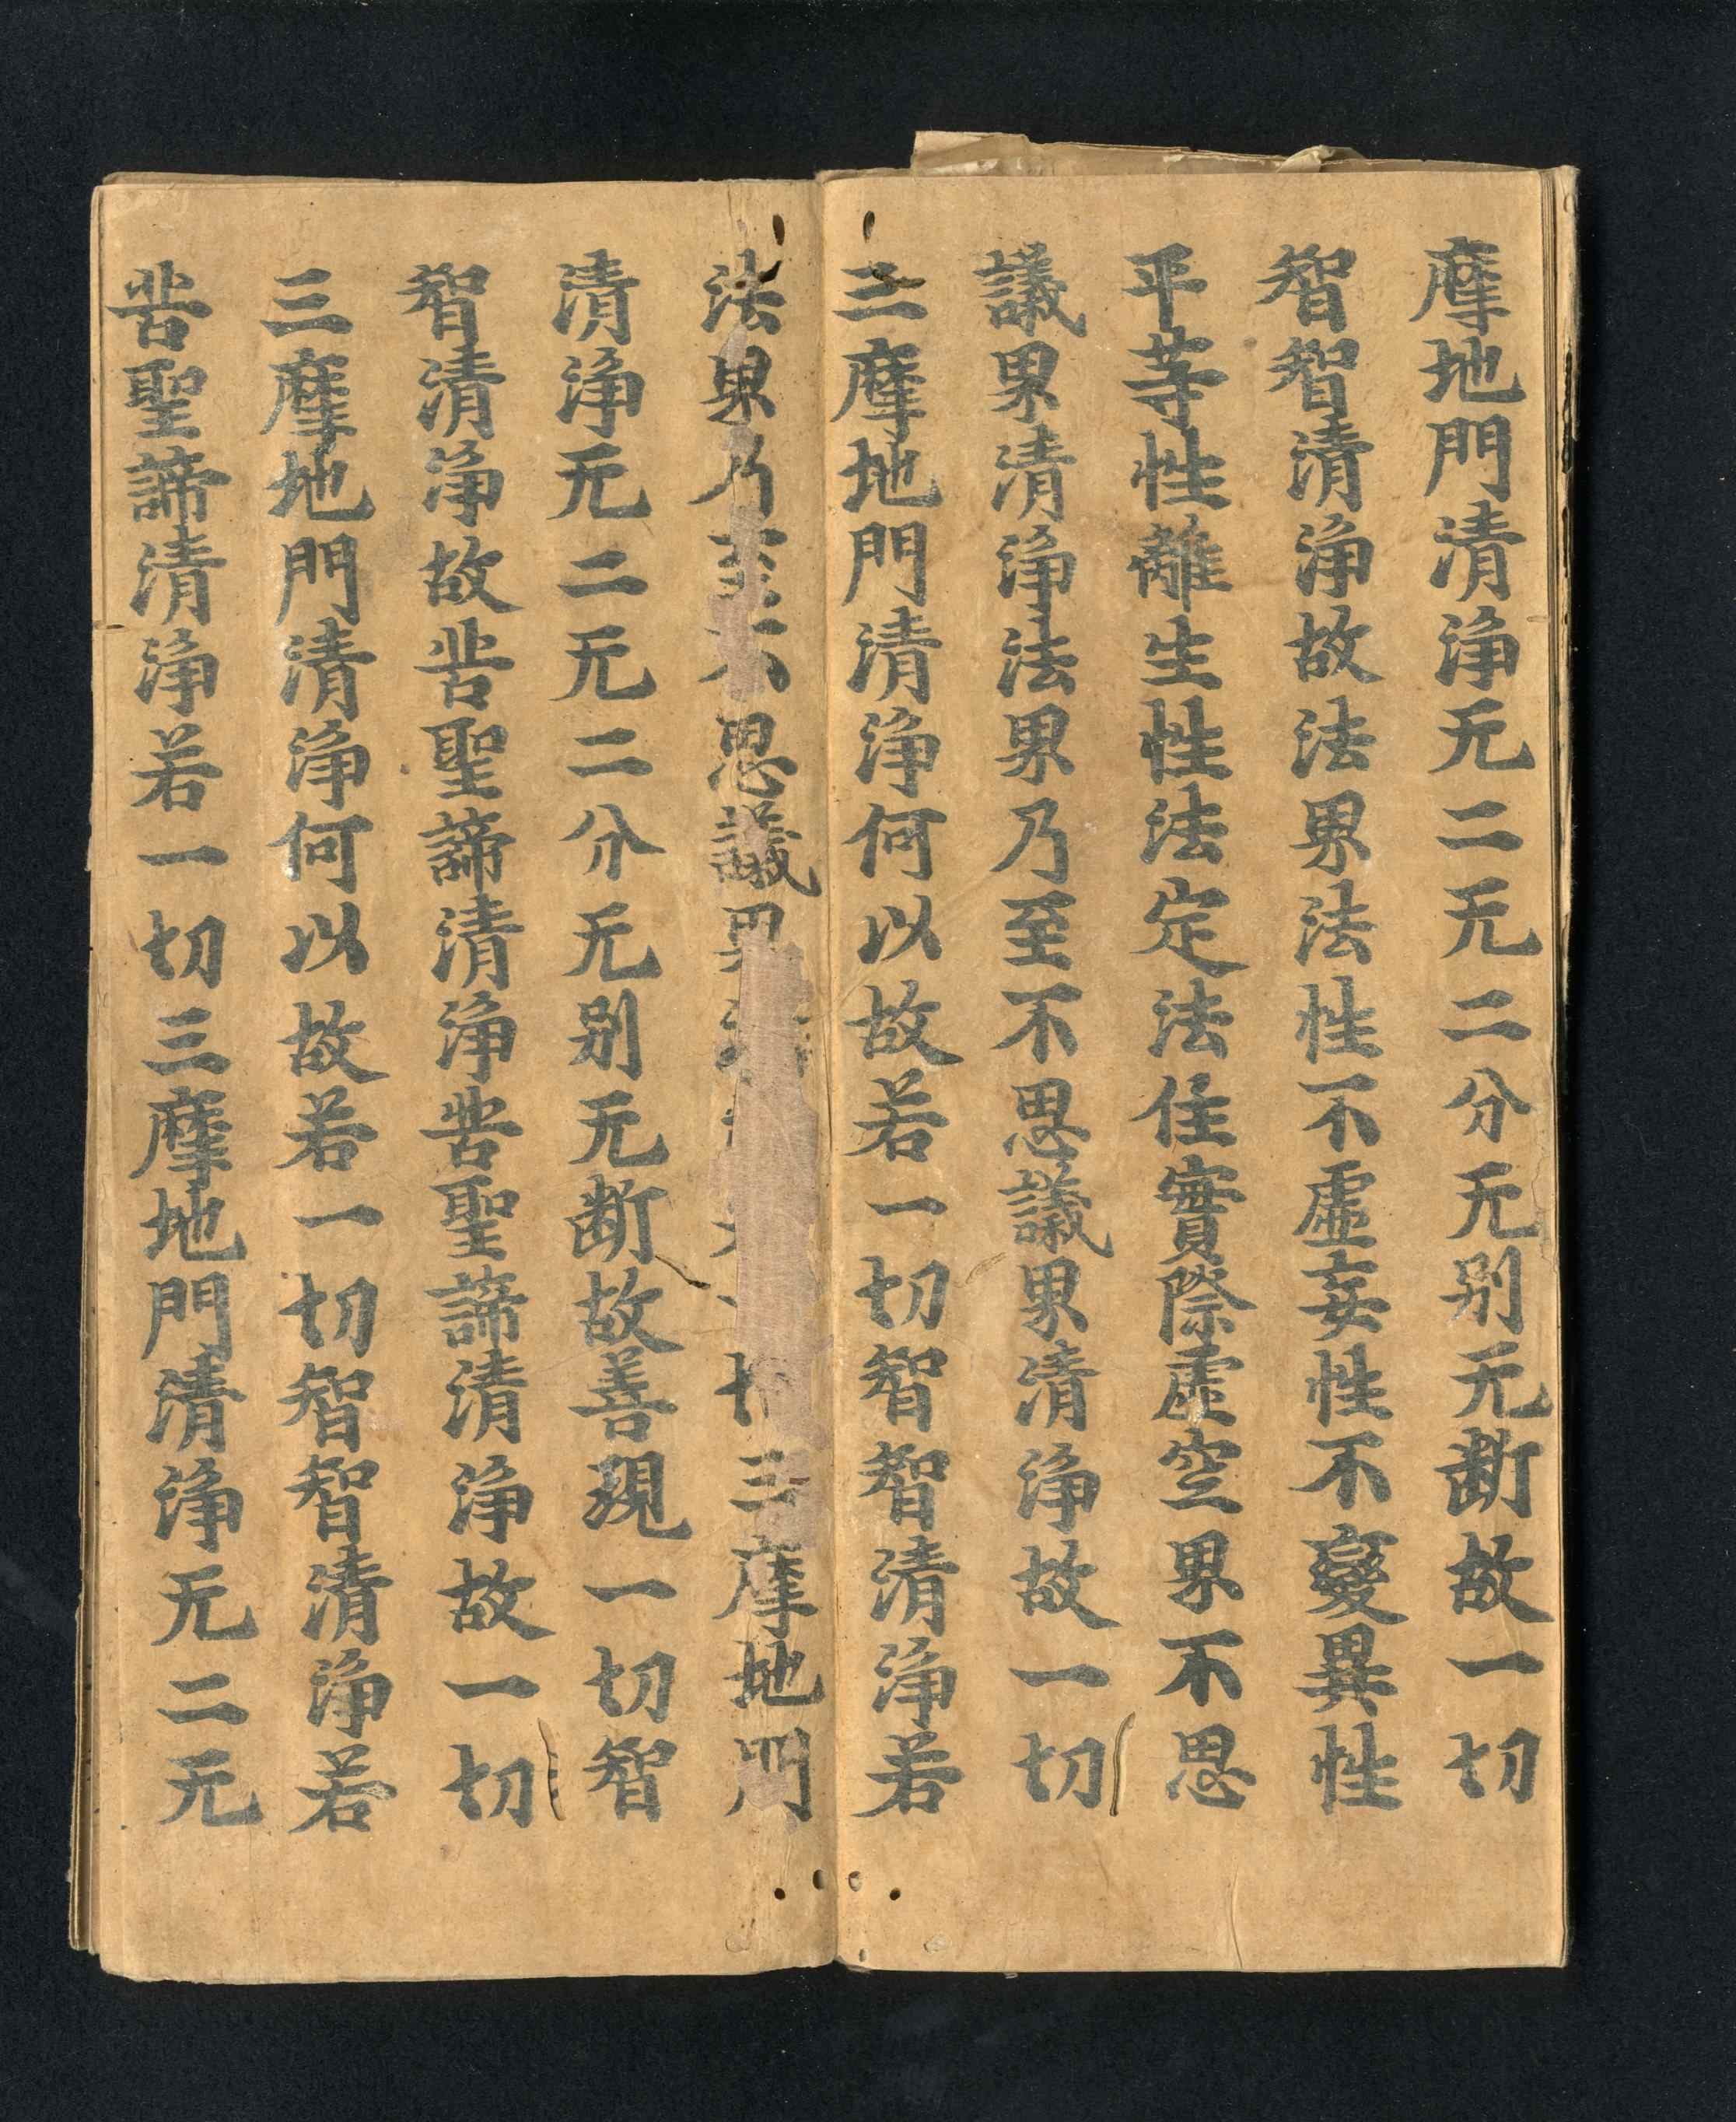 摩地門清浄无二无二分无别无断故一切
智智清浄故法界法性不虛妄性不變異性
平等性離生性法定法住實際虛空界不思
議界清浄法界乃至不思議界清浄故一切
三摩地門清浄何以故若一切智智清浄若
法界乃至不思議界切三摩地門
清浄无二无二分无别无断故善現一切智
智清浄故苦聖諦清浄苦聖諦清浄故一切
三摩地門清浄何以故若一切智智清浄若
苦聖諦清浄若一切三摩地門清浄无二无